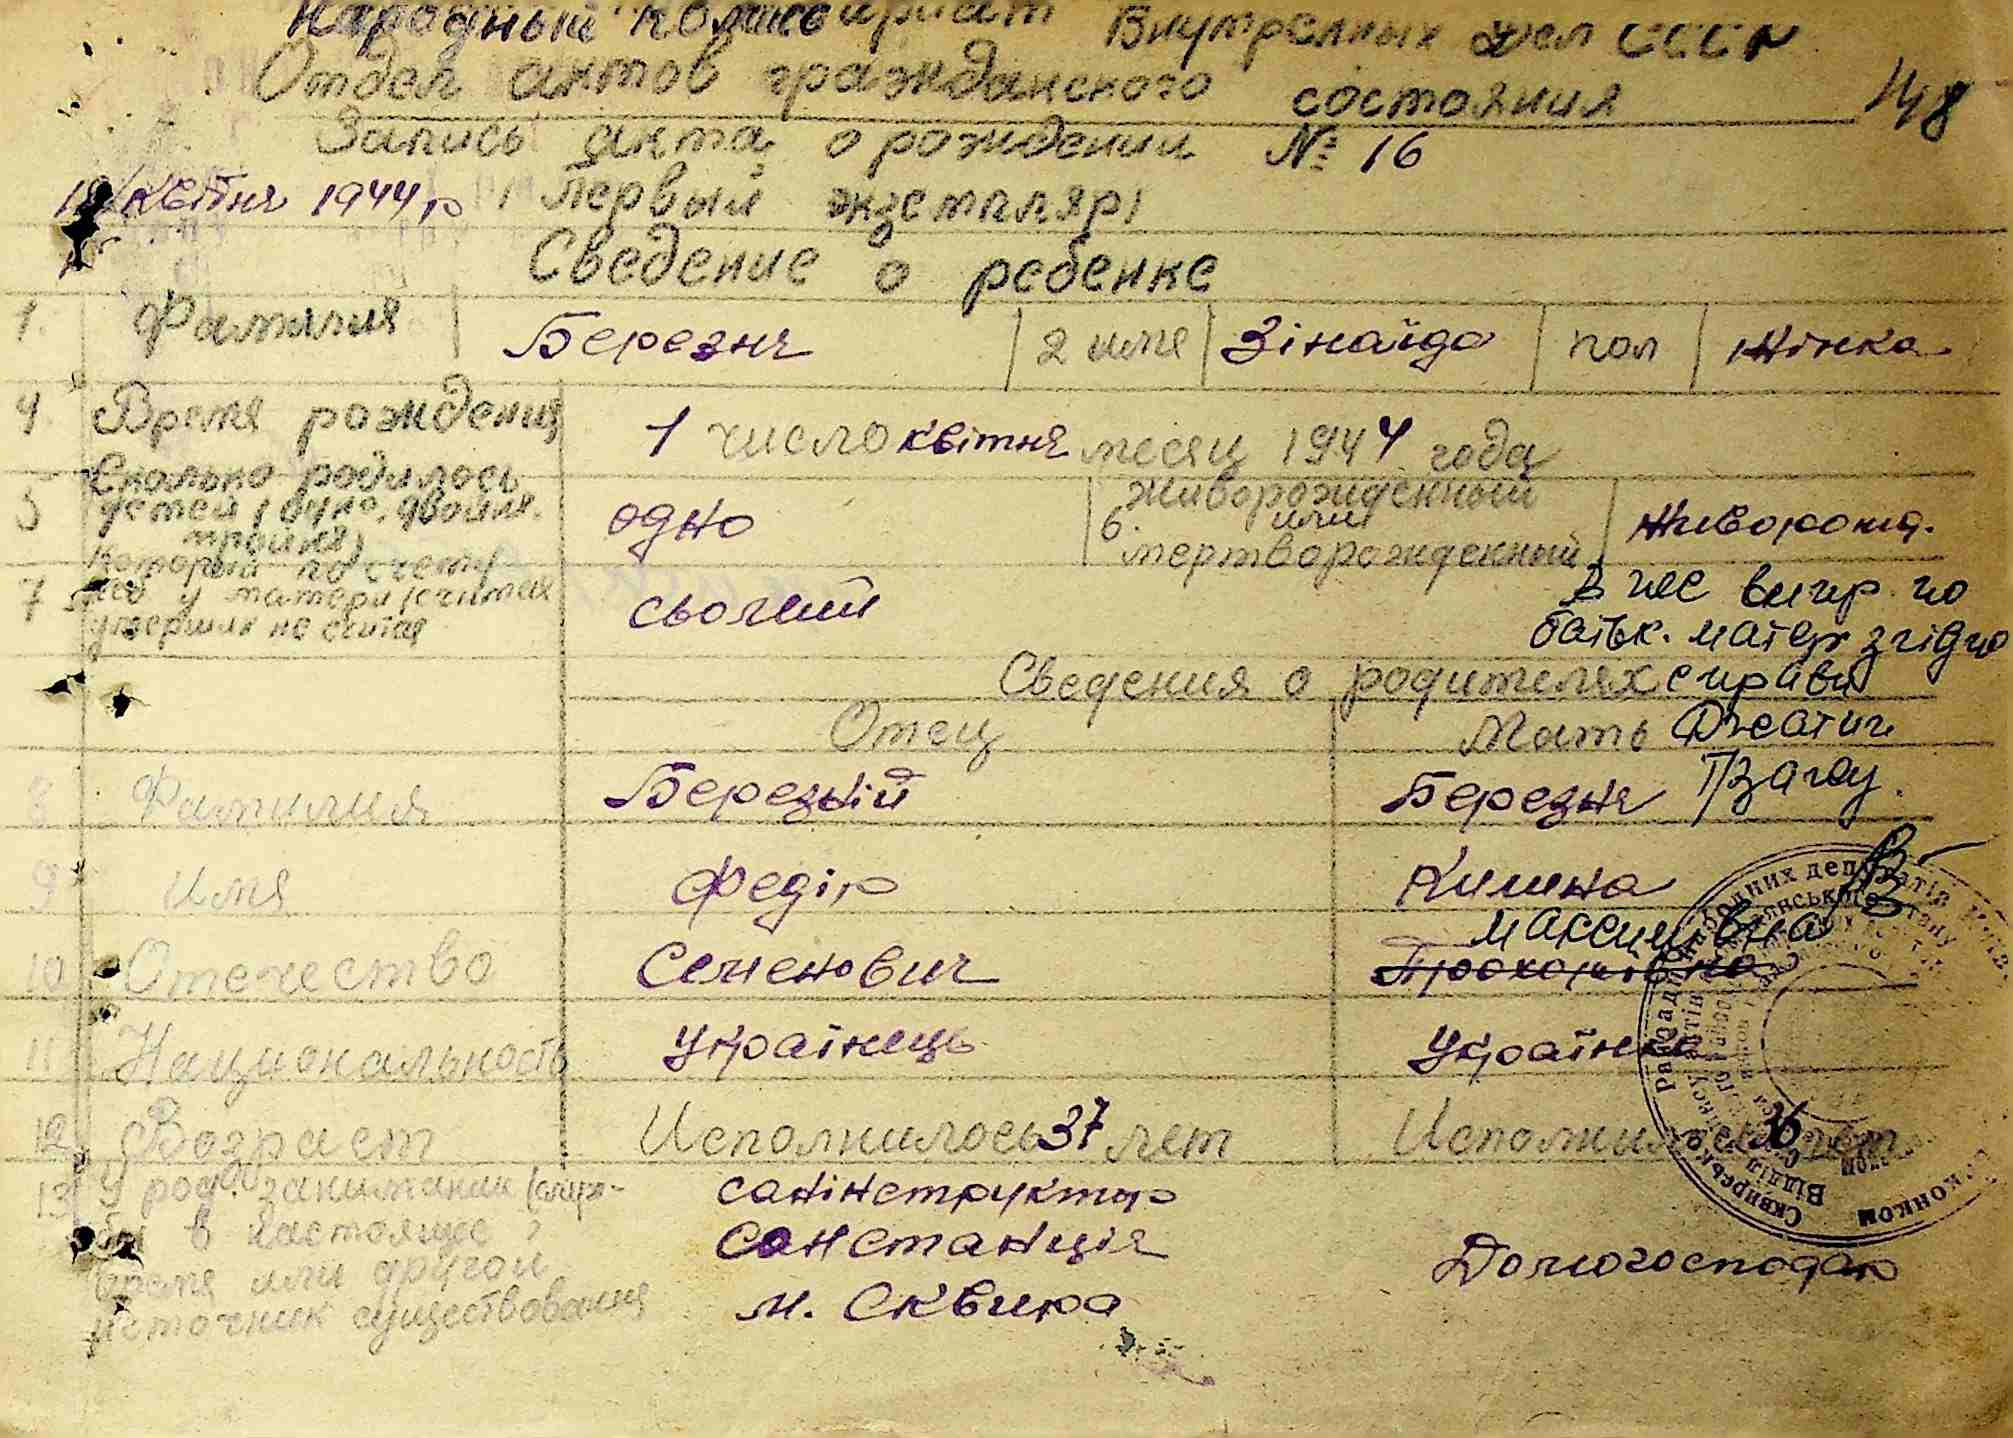 Народный комиссариат Внутренних дел СССР
Отдел актов гражданского состояния
148
Запись акта о рождении № 16
квітня 1944 р (Первый экземпляр)
Сведение о ребенке
1. Фамилия Березня 2 имя Зінаїда пол Жінка
4 Время рождения 1 число квітня месяц 1944 года
5 Сколько родилось детей (одно, двойня, тройня) одно 6. живорожденный или мертворожденный живорожд.
7 Который по счету реб у матери (считая умерших не считая сьомий
В гр
батьк. матер згідно
справи
Сведения о родителях
Отец Мать
8 Фамилия Березній Березня
9 Имя Федір Килина
Максимівна
10 Отечество Семенович Прохорівна
11 Национальность Українець Українка
12 Возраст Исполнилось 37 лет Исполнилось 36 лет
13 У род. занимание (служ-
бы в настоящее
время или другой
источник существования
санінструктор
санстанція
м. Сквира
Домогосподар